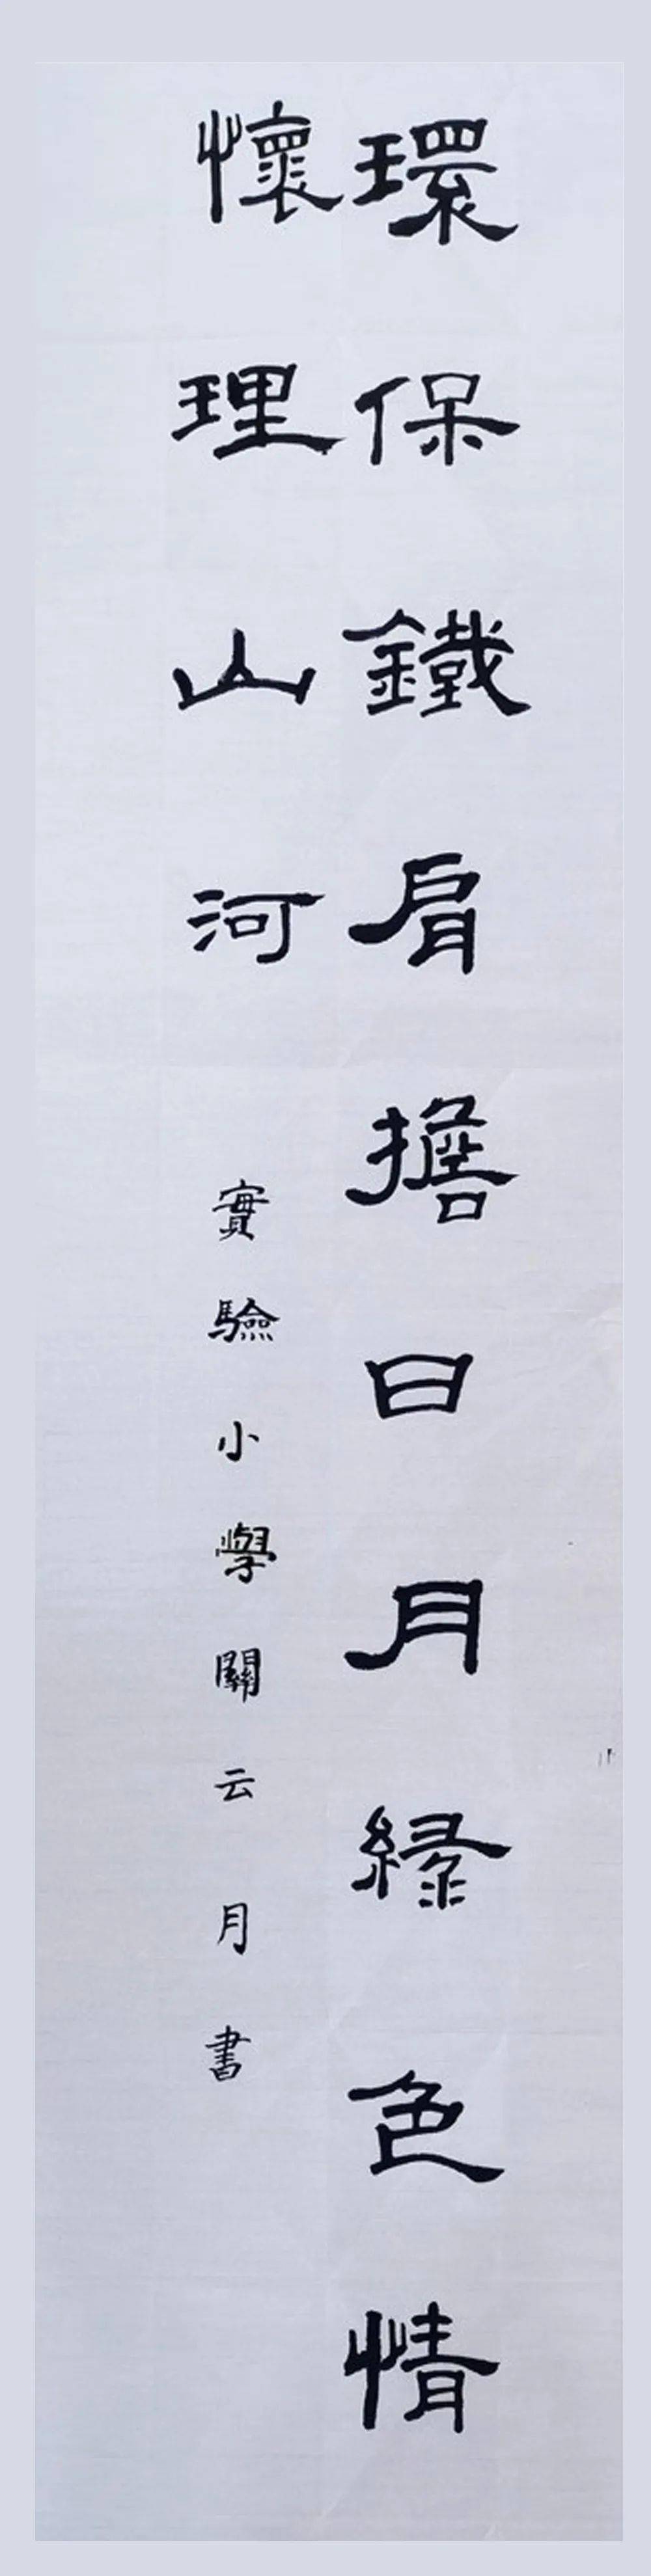 環保鐵肩擔日月緑色情
懷理山河
實驗小學關云月書